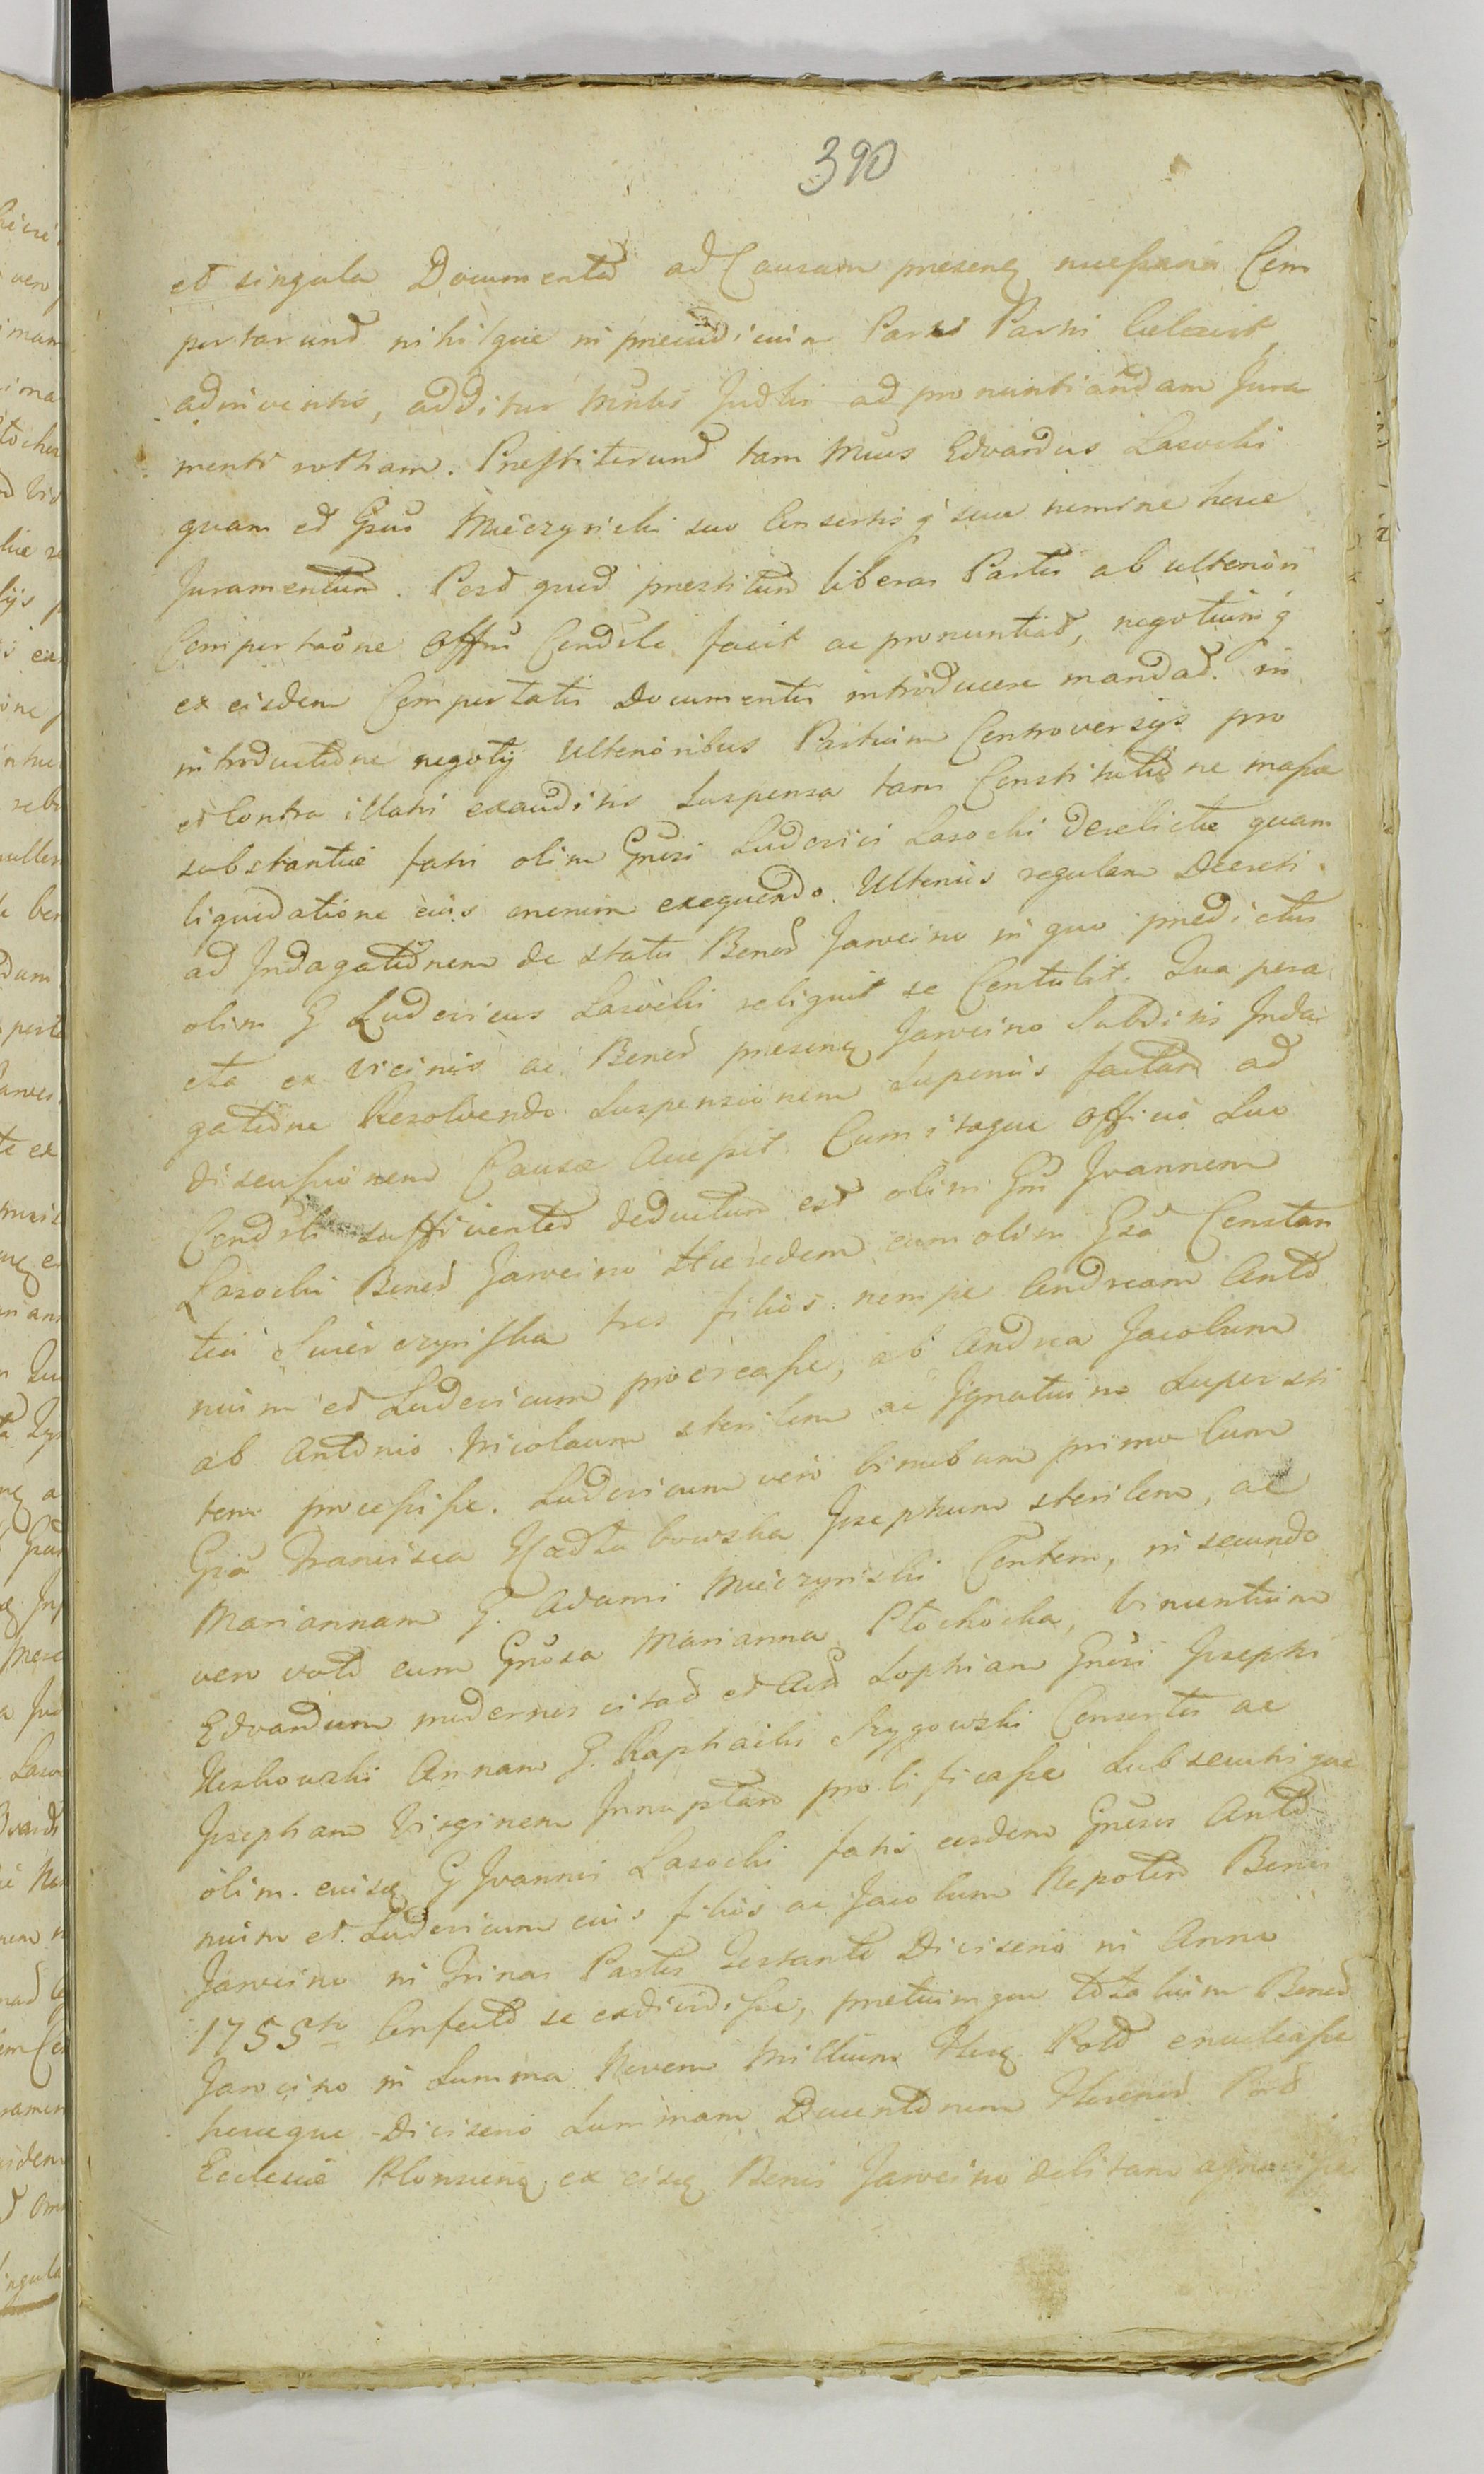 390
et singula Documenta ad Causam presenq necessaria Com
portarunt nihilque in preiudicium Pars Parti celavit,
adinventis, additur Mntris Judlis ad pronuntiandam Jura
menti rotham. Prestiterunt tam Mcus Edvardus Lasocki
quam et Gsus Mieczynski suo Consortisq suae nomine hocce
Juramentum. Post quod prestitum liberas Partes ab ulteriori
Comportaone Offm Condsle facit ac pronuntiat, negotiumq
ex eisdem Comportatis Documentis introducere mandat. in
introductione negotij ulterioribus Partium Controversijs pro
et Contra illati exauditis Suspensa tam Constitutione massae
substantiae fati olim Gnrsi Ludovici Lasocki derelictae quam
liquidatione eius onerum exequendo. Ulterius regulam Decreti
ad Indagationem de statu Bonor Jarocino in quo predictus
olim G Ludovicus Lasocki reliquit se Contulit. Qua pera
cta ex vicinis ac Bonor presenq Jarocino Subditis Inda
gatione Resolvendo Suspensionem superius factam ad
discussionem Causae Accessit. Cum itaque officio suo
Condsli sufficienter deductum est olim Gm Joannem
Lasocki Bonor Jarocino Haeredem cum olim Gsa Constan
tia Swierczynska tres filios nempe Andream Anto
nium et Ludovicum procreasse, ab Andrea Jacobum
ab Antonio Nicolaum sterilem ac Ignatium Supersti
tem processisse. Ludovicum vero binubum primo cum
Gsa Francisca sterilem, ac
Mariannam G. Adami Mieczynski Contem, in secundo
vero voto cum Gnrosa Marianna Plochocka, Vincentium
Edvardum modernos citat et Act Sophiam Gnrsi Josephi
Annam G. Raphaelis Szygowski Consortes ac
Josepham Virginem Innuptam prolificasse Subsecutisque
olim. eiusq G Joannis Lasocki fatis eosdem Gnrsos Anto
nium et Ludovicum eius filios ac Jacobum Nepotem Bonis
Jarocino in Trinas Partes Divisorio in Anno
1755to Confecto se exdividisse, pretiumque totalium Bonor
Jarocino in Summa Novem Millium Flrq Pold enucleasse
hocceque Divisorio Summam Ducentorum Florenor Pold
Ecclesiae Blonienq ex eisq Bonis Jarocino debitam